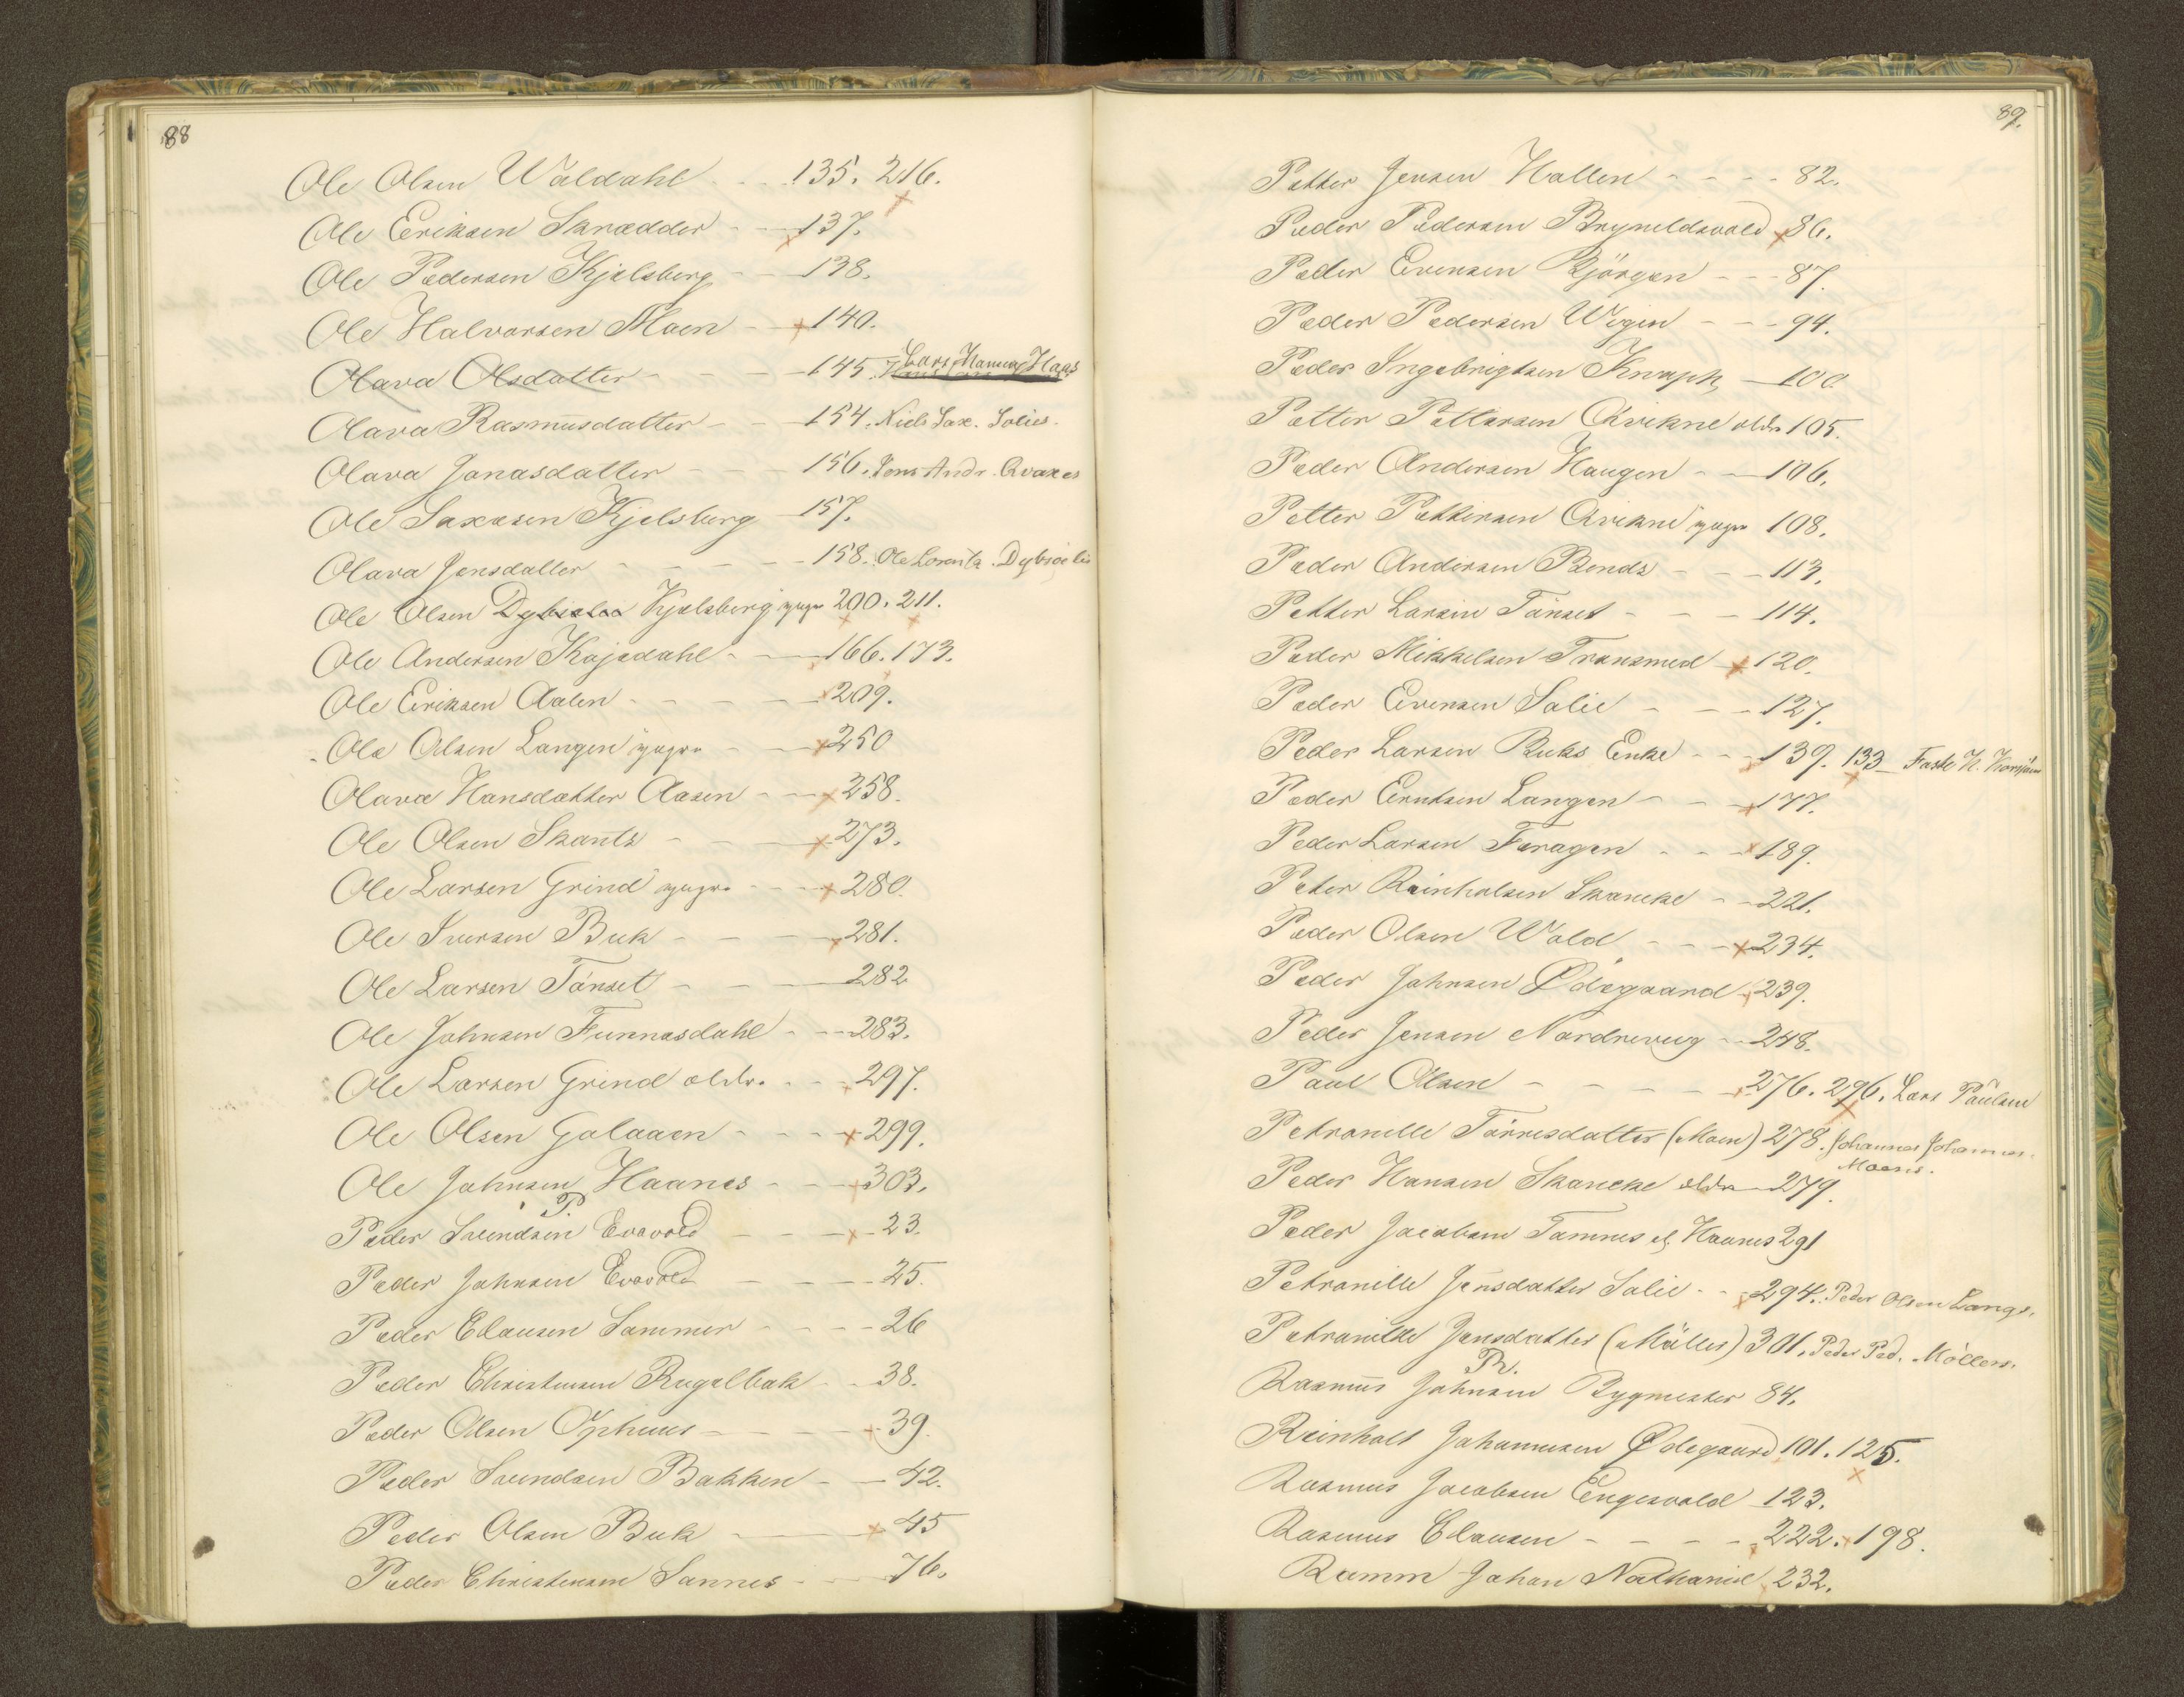 88
Ole Olsen Woldahl - - 135. 216.
Ole Eriksen Skrædder - - 137.
Ole Pedersen Kjelsberg - - 138.
Ole Halvorsen Moen - - 140.
Olava Olsdatter - - - 145. Lars Haas
Olava Rasmusdatter - - 154. Niels Sax. Solies.
Olava Jonasdatter - - 156. Jens Andr.
Ole Saxesen Kjelsberg - 157.
Olava Jensdatter - - - - 158. Ole Lorentz. Dybsoelie
Ole Olsen Kjelsberg yngre 200. 211.
Ole Andersen Kojedahl - - 166. 173.
Ole Eriksen Aalen - - - - 209.
Ole Olsen Langen yngre - - 250
Olava Hansdatter Aasen - - 258.
Ole Olsen Skantz - - - 273.
Ole Larsen Grind yngre - - 280.
Ole Iversen Buk - - - 281.
Ole Larsen Tönset - - - 282
Ole Johnsen Funnasdahl - - 283.
Ole Larsen Grind oldr. - - 297.
Ole Olsen Galaaen - - - 299.
Ole Johnsen Haanes - - 303.
P.
Peder Svendsen Evavold - - - 23.
Peder Johnsen Evavold - - - - 25.
Peder Clausen Sammer - - - - 26
Peder Christensen Rugelbak - - 38.
Peder Olsen Ophuus - - - 39.
Peder Svendsen Bakken - - 42.
Peder Olsen Buk - - - 45
Peder Christensen Sannes - - 76.
89.
Petter Jensen Hallen - - - - 82.
Peder Pedersen Bryneldsvold 86.
Peder Evensen Bjørgen - - - 87.
Peder Pedersen Wigen - - - 94.
Peder Ingebrigtsen Knuph - 100
Petter Pettersen Qvikne oldr. 105.
Peder Andersen Haugen - - 106.
Petter Pettersen Qvikne yngre 108.
Peder Andersen Bends - - - 113.
Petter Larsen Tönset - - - 114.
Peder Mikkelsen Tronsmed - 120.
Peder Evensen Solie - - - 127.
Peder Larsen Buks Enke - - - 139. 133 - Faste H.
Peder Erntsen Langen - - - 177.
Peder Larsen Feragen - - - 189.
Peter Reinholsen Skancke - - 221.
Peder Olsen Wold - - - 234.
Peder Johnsen Ødegaard - 239.
Peder Jensen Nordrevug - - 248.
Paul Olsen - - - - - 276. 296. Lars Paulsen
Petronelle Törresdatter (Moen) 278. Johannes Johannes.
Moens.
Peder Hansen Skancke oldr - 279.
Peder Jacobsen Tamnes el. Haanes 291
Petronille Jensdatter Solie - - 294. Peder Olsen Lange.
Petronille Jensdatter (Möller) 301. Peder Ped. Möllers.
R.
Rasmus Johnsen Bygmester 84.
Reinholt Johannesen Ødegaard 101. 125.
Rasmus Jacobsen Engesvold 123.
Rasmus Clausen - - - - 222. 198.
Ramm Johan Nathaniel 232.